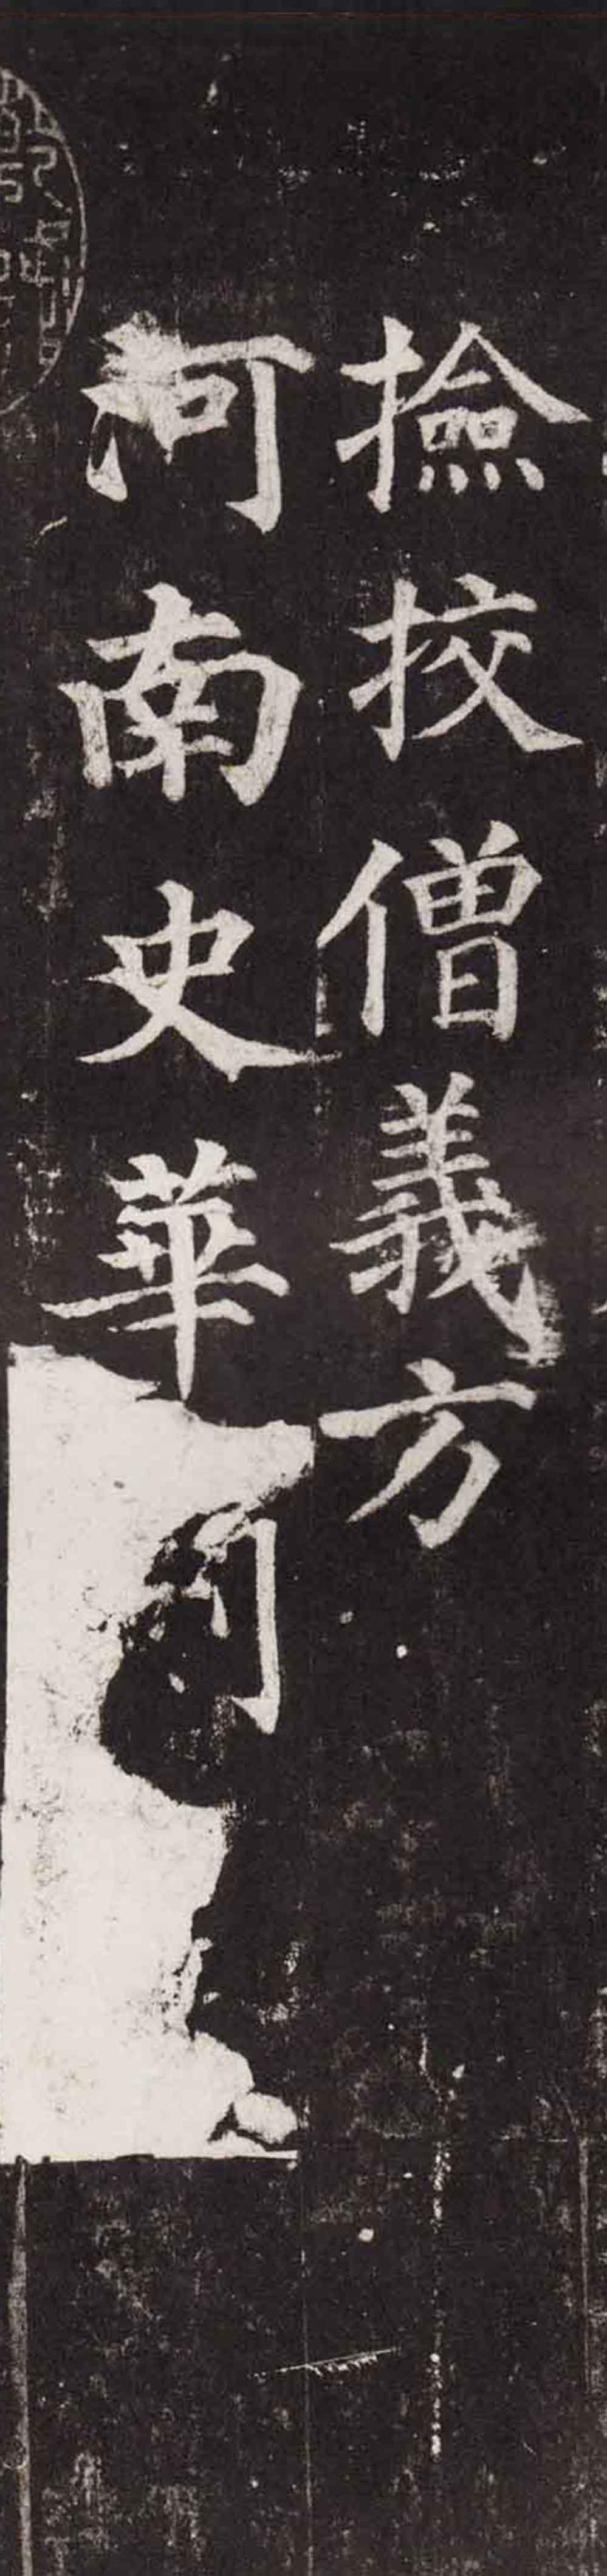 撿挍僧義方
河南史華刻